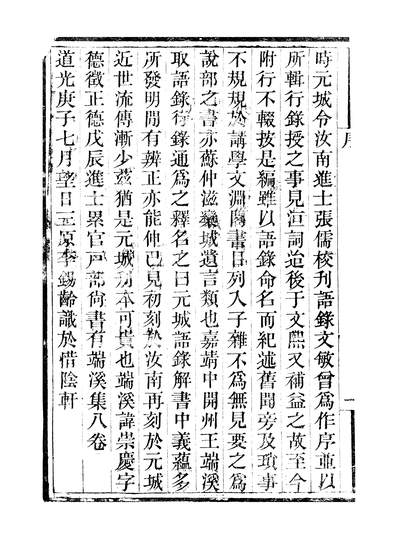 時元城令汝南進士張儒校刊語錄文敏曾為作序並以
所輯行錄授之事見洹詞迨後于文熙又補益之故至今
附行不輟按是編雖以語錄命名而紀述舊聞旁及瑣事
不規規於講學文淵閣書目列入子雜不為無見要之為
說部之書亦蘇仲滋欒城遺言類也嘉靖中開州王端溪
取語錄行錄通為之釋名之曰元城語錄解書中義蘊多
所發明間有辨正亦能仲己見初刻於汝南再刻於元城
近世流傳漸少茲猶是元城刊本可貴也端溪諱崇慶字
德徵正德戊辰進士累官戸部尚書有端溪集八卷
道光庚子七月望日三原李錫齡識於惜陰軒
序
一